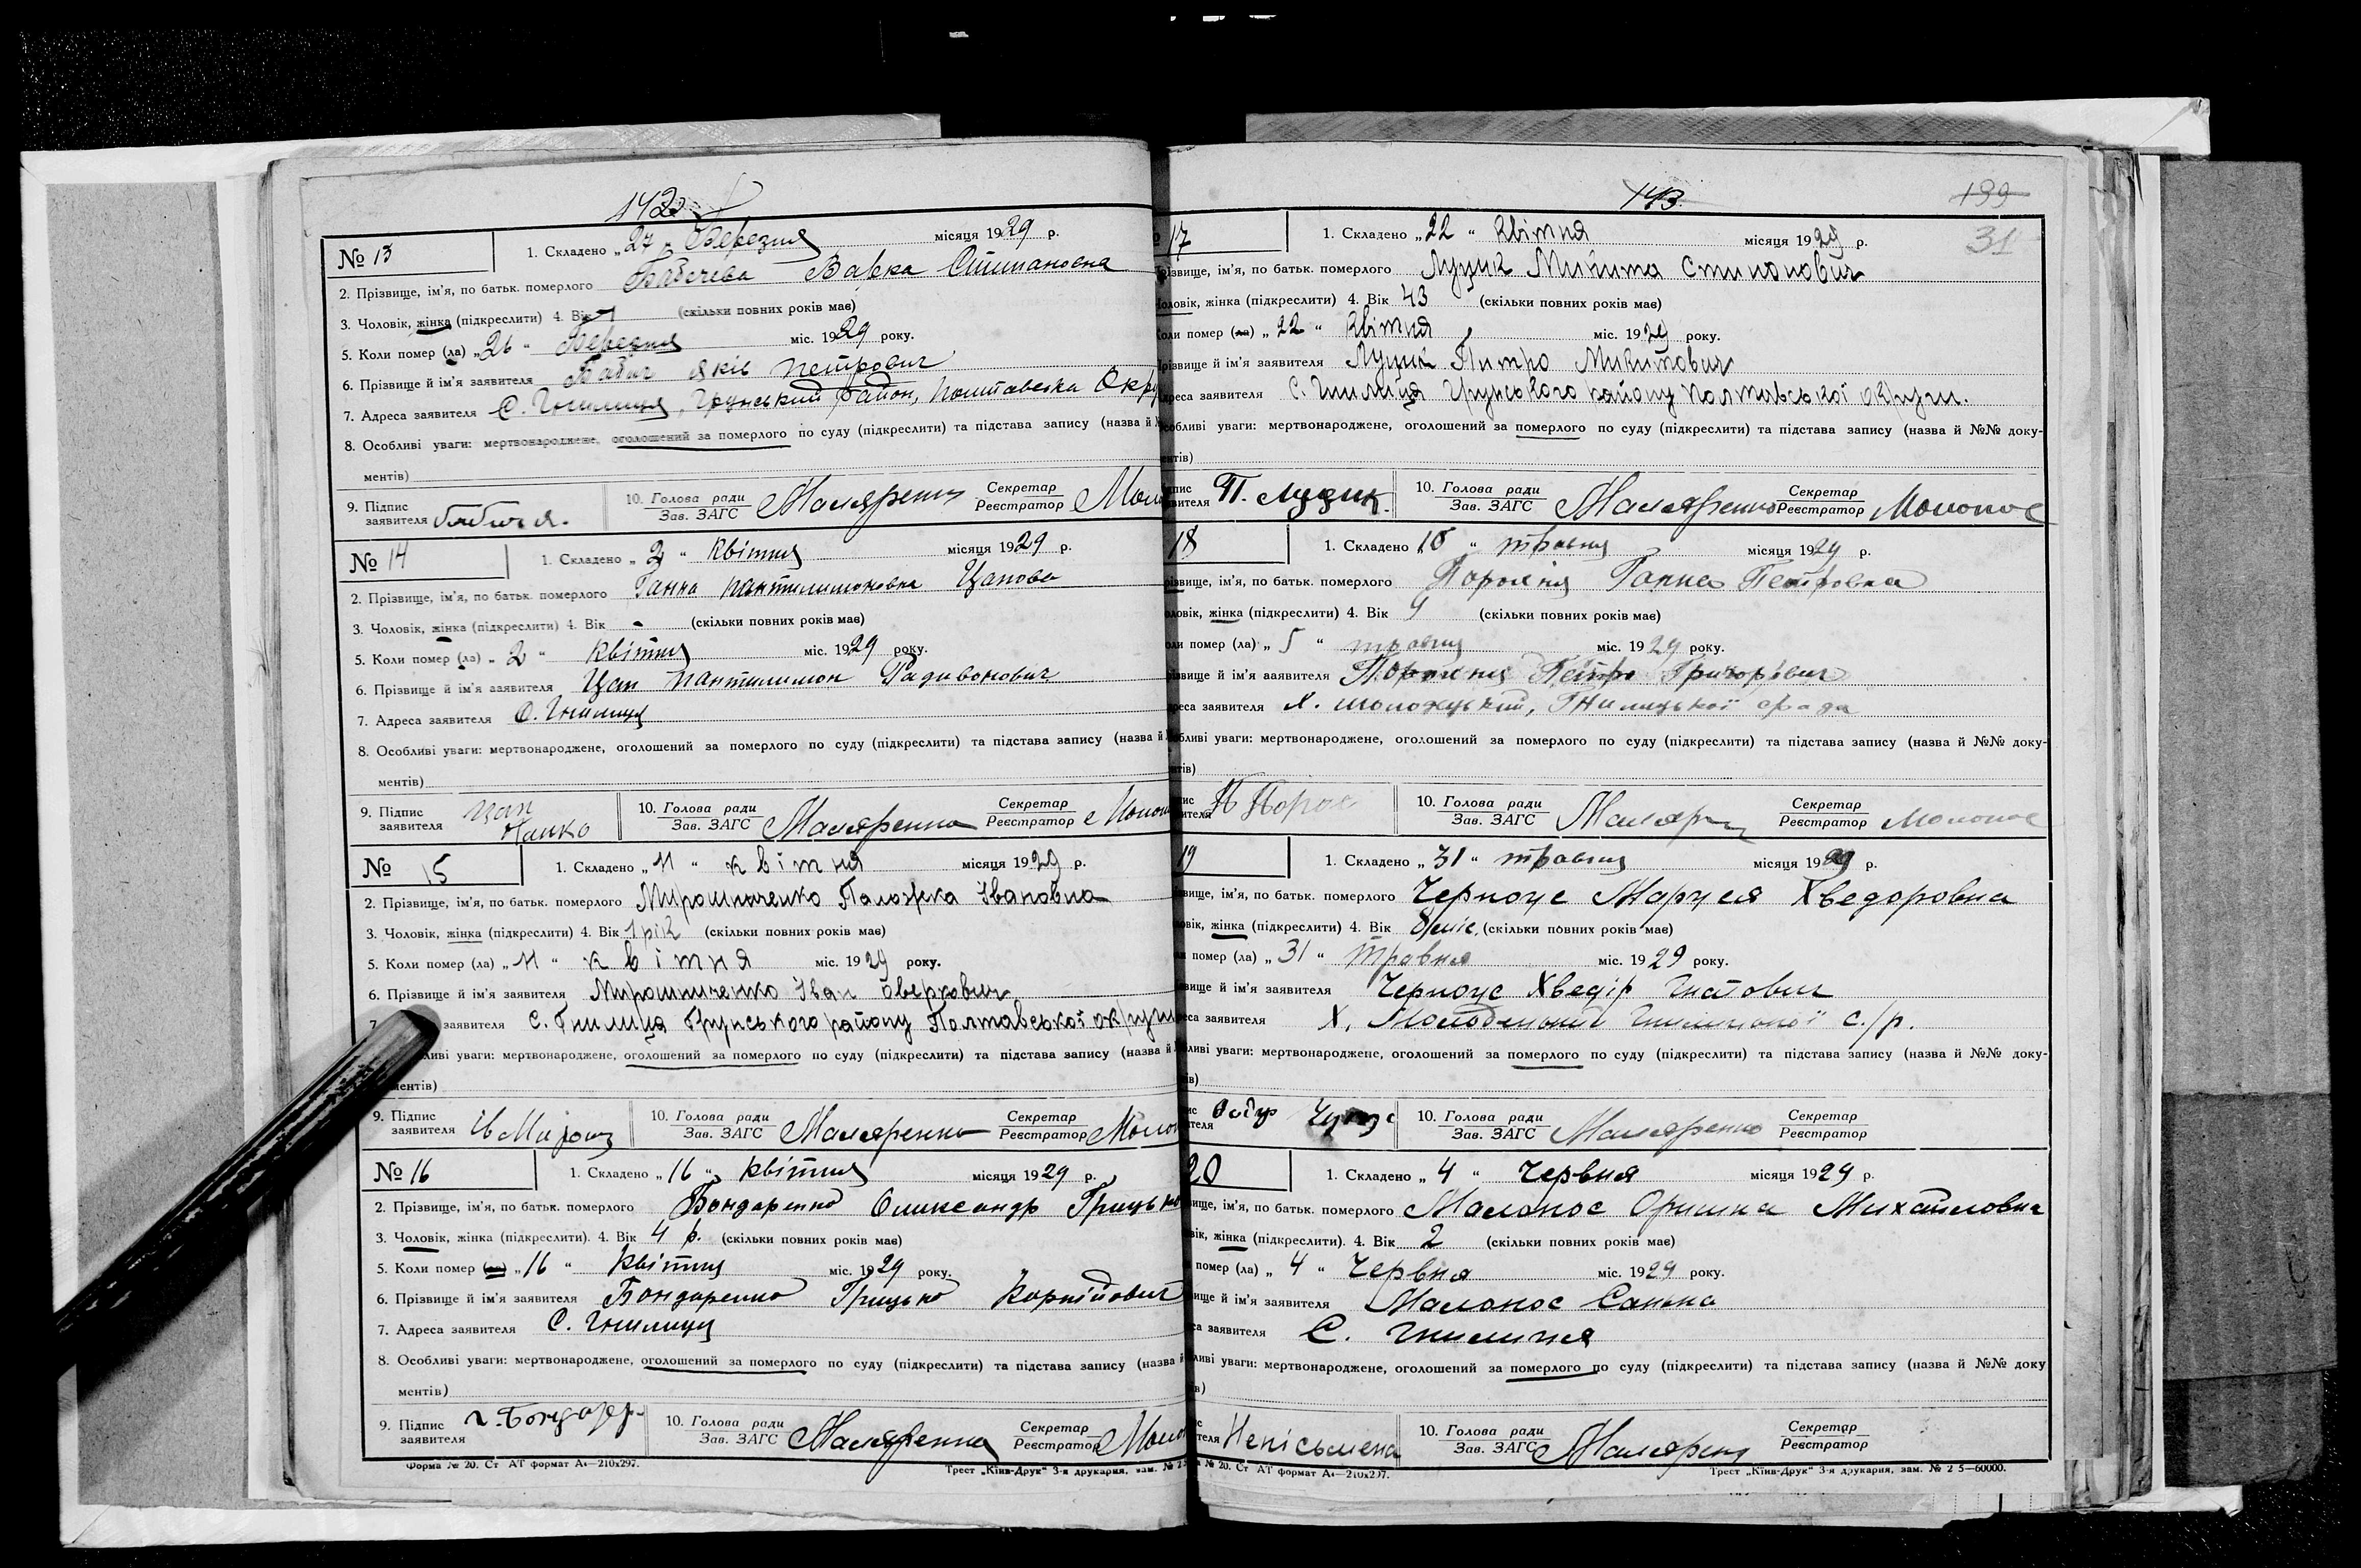 142
№ 13
1. Складено „27 „ Березня місяця 1929 р.
2. Прізвище, ім'я, по батьк. померлого Бабичева Варка Стипановна
3. Чоловік, жінка (підкреслити) 4. Вік (скільки повних років має)
5. Коли помер (ла) „26 “ Березня міс. 1929 року.
6. Прізвище й ім'я заявителя Бабич Яків Петрович
7. Адреса заявителя С. Гнилиця, Грунський район, Полтавська Окру
8. Особливі уваги: мертвонароджене, оголошений за померлого по суду (підкреслити) та підстава запису (назва й
ментів)
9. Підпис заявителя бабич я.
10. Голова ради Зав. ЗАГС Маляренко Секретар Реєстратор
№ 14
1. Складено „ 2 “ Квітня місяця 1929 р.
2. Прізвище, ім'я, по батьк. померлого Ганна Пантилимоновна Цапова
3. Чоловік, жінка (підкреслити) 4. Вік - (скільки повних років має)
5. Коли помер (ла) „ 2 “ Квітня міс. 1929 року.
6. Прізвище й ім'я заявителя Цап Пантилимон Радивонович
7. Адреса заявителя С. Гнилиця
8. Особливі уваги: мертвонароджене, оголошений за померлого по суду (підкреслити) та підстава запису (назва й
ментів)
9. Підпис заявителя Цап Панко
10. Голова ради Зав. ЗАГС Маляренко Секретар Реєстратор
№ 15
1. Складено „11 “ квітня місяця 1929 р.
2. Прізвище, ім'я, по батьк. померлого Мирошниченко Палажка Івановна
3. Чоловік, жінка (підкреслити) 4. Вік 1 рік (скільки повних років має)
5. Коли помер (ла) „11 “ квітня міс. 1929 року.
6. Прізвище й ім'я заявителя Мирошниченко Іван Оверкович
7. заявителя С. Гнилиця Грунського району Полтавської округи
ливі уваги: мертвонароджене, оголошений за померлого по суду (підкреслити) та підстава запису (назва й
ментів)
9. Підпис заявителя Ів Мирош
10. Голова ради Зав. ЗАГС Маляренко Секретар Реєстратор
№ 16
1. Складено „16 “ Квітня місяця 1929 р.
2. Прізвище, ім'я, по батьк. померлого Бондаренко Олександр Грицько
3. Чоловік, жінка (підкреслити). 4. Вік 4 р. (скільки повних років має)
5. Коли помер (ла) „16 “ Квітня міс. 1929 року.
6. Прізвище й ім'я заявителя Бондаренко Грицько Корнійович
7. Адреса заявителя С. Гнилиця
8. Особливі уваги: мертвонароджене, оголошений за померлого по суду (підкреслити) та підстава запису (назва й
ментів)
9. Підпис заявителя г. Бондар
10. Голова ради Зав. ЗАГС Маляренко Секретар Реєстратор
Форма № 20. Ст АТ формат А4—210х297. Трест „Київ-Друк“ 3-я друкарня, зам. № 25
143
199
31
17
1. Складено „22 “ Квітня місяця 1929 р.
різвище, ім'я, по батьк. померлого Луцик Микита Стипонович
оловік, жінка (підкреслити) 4. Вік 43 (скільки повних років має)
оли помер (ла) „ 22 “ Квітня міс. 1929 року.
різвище й ім'я заявителя Луцик Питро Микитович
реса заявителя С. Гнилиця Грунського району Полтавської округи.
обливі уваги: мертвонароджене, оголошений за померлого по суду (підкреслити) та підстава запису (назва й №№ доку-
нтів)
пис вителя П. Луцик.
10. Голова ради Зав. ЗАГС Маляренко Секретар Реєстратор Молонос
18
1. Складено „ “ травня місяця 1929 р.
ізвище, ім'я, по батьк. померлого Порохня Ганна Петровна
ловік, жінка (підкреслити) 4. Вік 9 (скільки повних років має)
оли помер (ла) „ 5 “ травня міс. 1929 року.
ізвище й ім'я заявителя Порохня Петро Григорівич
реса заявителя Х. Гнилицької
обливі уваги: мертвонароджене, оголошений за померлого по суду (підкреслити) та підстава запису (назва й №№ доку-
нтів)
пис ителя П Порох
10. Голова ради Зав. ЗАГС Маляр Секретар Реєстратор Молонос
19
1. Складено „ 31 “ травня місяця 1929 р.
звище, ім'я, по батьк. померлого Черноус Маруся Хведоровна
овік, жінка (підкреслити) 4. Вік 8 міс. (скільки повних років має)
и помер (ла) „ 31 “ травня міс. 1929 року.
звище й ім'я заявителя Черноус Хведір Гнатович
еса заявителя Х. с./р.
бливі уваги: мертвонароджене, оголошений за померлого по суду (підкреслити) та підстава запису (назва й №№ доку-
ів)
ис теля
10. Голова ради Зав. ЗАГС Маляренко Секретар Реєстратор
20
1. Складено „ 4 “ Червня місяця 1929 р.
вище, ім'я, по батьк. померлого Малонос Оришка Михайловна
вік, жінка (підкреслити). 4. Вік 2 (скільки повних років має)
помер (ла) „ 4 “ Червня міс. 1929 року.
ище й ім'я заявителя Малонос Санька
са заявителя С. Гнилиця
ливі уваги: мертвонароджене, оголошений за померлого по суду (підкреслити) та підстава запису (назва й №№ доку
ів)
с теля Неписьмена
10. Голова ради Зав. ЗАГС Маляренко Секретар Реєстратор
№ 20. Ст АТ формат А4—210х297. Трест „Київ-Друк“ 3-я друкарня, зам. № 2 5—60000.